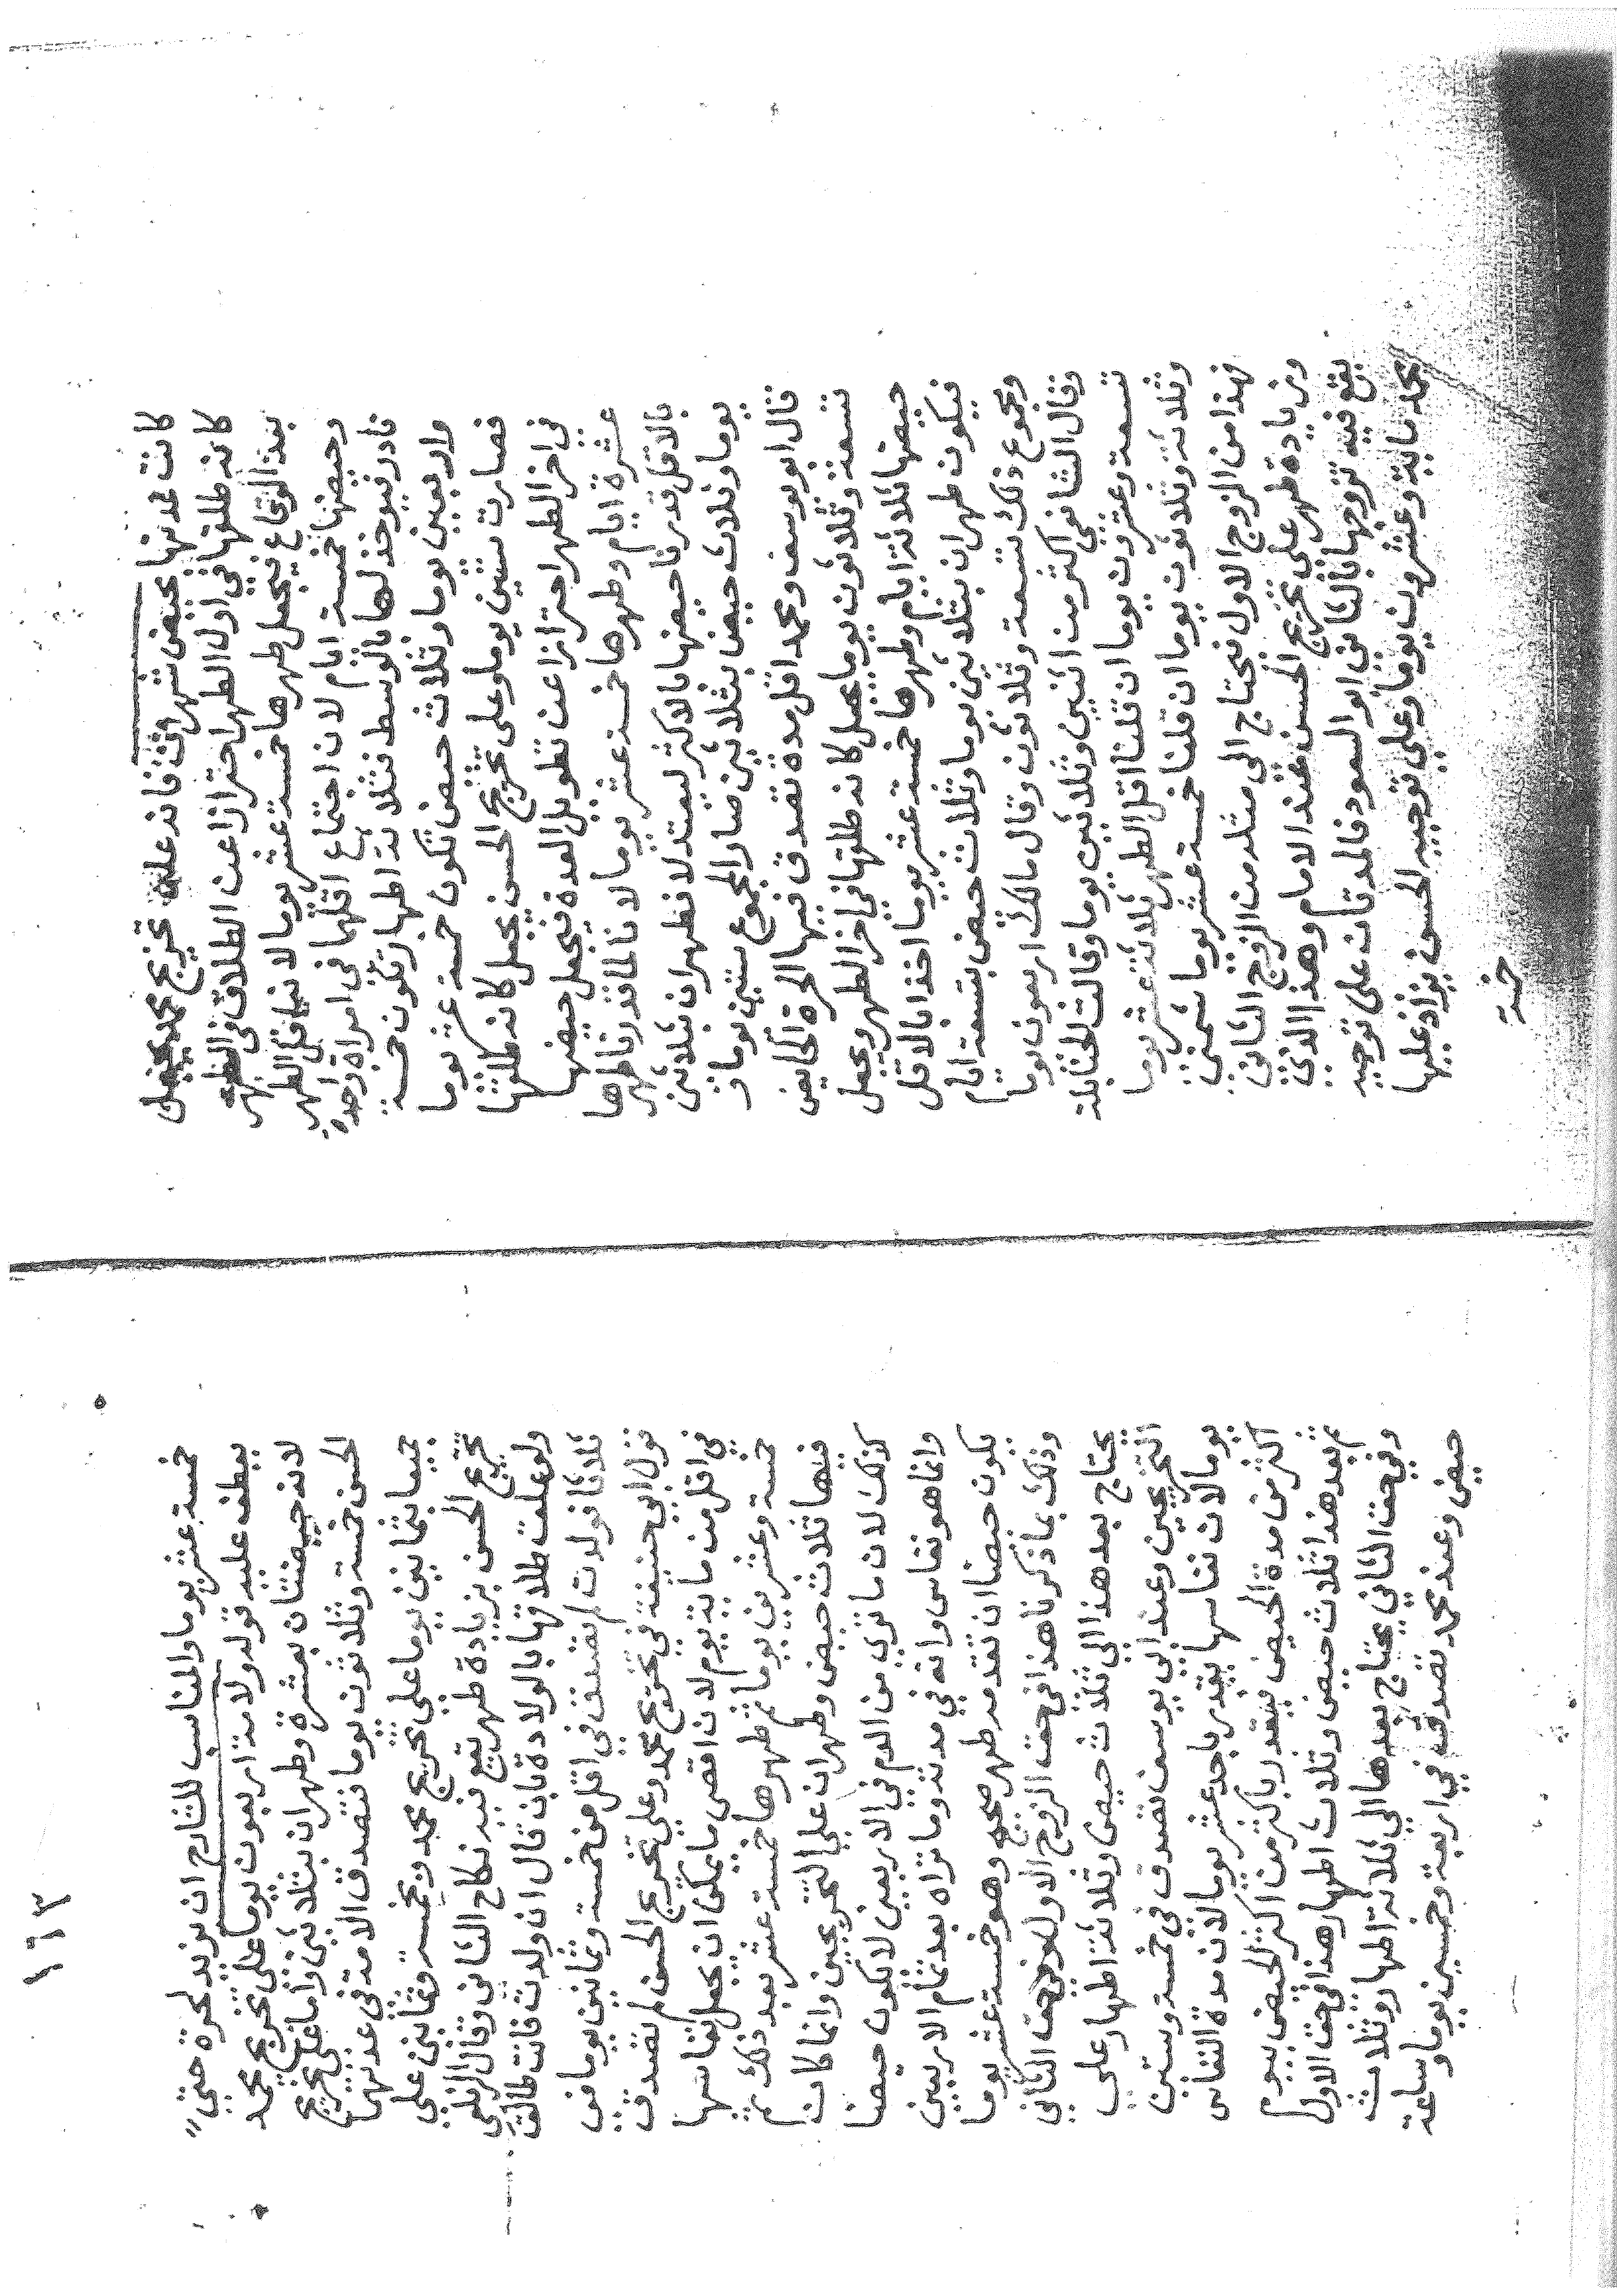 كانت عدتها بحيض فانه على تخريج محمد يجعل
كانه طلقها في اول الطهر احترازا عن الطلاق في الطهر
بعد الوقاع فيجعل طهرها خمسة عشر يوما لانه اقل الطهر
وحيضها خمسة ايام لان اجتماع اقلها في امراة واحدة
نادر فيوخذ لها بالوسط فثلاثة اطهار تكون خمسة
واربعين يوما وثلاث حيض تكون خمسة عشر يوما
فصارت ستين يوما وعلى تخريج الحسن يجعل كانه طلقها
في اخر الطهر احترازا عن تطويل العدة فيجعل حيضها
عشرة ايام وطهرها خمسة عشر يوما لانا لما قدرنا طهرها
بالاقل قدرنا حيضها بالاكثر ليعتدلا فطهران بثلاثين
يوما وثلاث حيض بثلاثين صار المجموع ستين يوما و
قال ابو يوسف ومحمد اقل مدة تصدق فيها الحرة الحايض
تسعة وثلاثون يوما يجعل كانه طلقها في اخر الطهر ويجعل
حيضها ثلاثة ايام وطهرها خمسة عشر يوما اخذا بالاقل
فيكون طهران بثلاثين يوما وثلاث حيض بتسعة ايام
ومجموع ذلك تسعة وثلاثون وقال مالك اربعون يوما
وقال الشافعي اكثر من اثنين وثلاثين يوما وقالت الحنابلة
تسعة وعشرون يوما ان قلنا اقل الطهر ثلاثة عشر يوما
وثلاثة وثلاثون يوما ان قلنا خمسة عشر يوما شمني
فهذا من الزوج الاول فيحتاج الى مثله من الزوج الثاني
وزيادة طهر على تخريج الحسن عند الامام وهذا الذي
يقع فيه تزوجها بالثاني ابو السعود فالمدتان على توجيه
محمد ماية وعشرون يوما وعلى توجيه الحسن يزاد عليها
خمسة
١٩٣
خمسة عشر يوما والمناسب للشارح ان يزيد لحرة حتى
يعطف عليه قوله ولامة اربعون يوما على تخريج محمد
لانه حيضتان بعشرة وطهران بثلاثين واما على تخريج
الحسن خمسة وثلاثون يوما فتصدق الامة في عدتيها
جميعا بثمانين يوما على تخريج محمد وبخمسة وثمانين على
تخريج الحسن بزيادة طهر يقع فيه نكاح الثاني وقال الزيلعي
ولو علق طلاقها بالولادة بان قال ان ولدت فانت طالق
ثلاثا فولدت لم تصدق في اقل من خمسة وثمانين يوما في
قول ابي حنيفة في تخريج محمد وعلى تخريج الحسن لم تصدق
في اقل من ماية يوم لان اقصى ما يمكن ان يجعل نفاسها
خمسة وعشرين يوما ثم طهرها خمسة عشر بعد ذلك ثم
فيها ثلاث حيض وطهران على التخريجين وانما كان
كذلك لان ما ترى من الدم في الاربعين لا يكون حيضا
وانما هو نفاس وانه في مدته وما تراه بعد تمام الاربعين
يكون حيضا ان تقدمه طهر صحيح وهو خمسة عشر يوما
وذلك بما ذكرنا هذا في حق الزوج الاول وفي حق الثاني
يحتاج بعد هذا الى ثلاث حيض وثلاثة اطهار على
التخريجين وعند ابي يوسف تصدق في خمسة وستين
يوما لان نفاسها يقدر باحد عشر يوما لان مدة النفاس
اكثر من مدة الحيض فيقدر باكثر من اكثر الحيض بيوم
ثم بعد هذا ثلاث حيض وثلاث اطهار هذا في حق الاول
وفي حق الثاني يحتاج بعدها الى ثلاثة اطهار وثلاث
حيض وعند محمد تصدق في اربعة وخمسين يوما وساعة